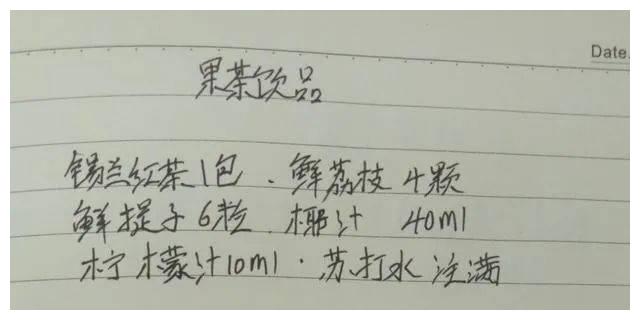 Date.
果茶饮品
锡兰红茶1包.鲜荔枝4颗
鲜提子6粒.椰汁 40ml
柠檬汁10ml·苏打水注满